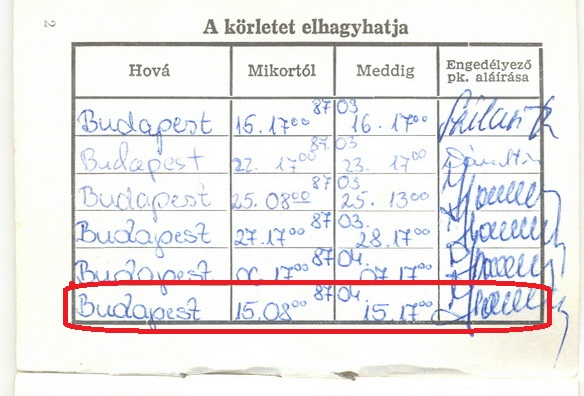 2
A körletet elhagyhatja
Hová Mikortól Meddig Engedélyező pk. aláírása
Budapest 15. 17⁰⁰ 87 03 16. 17⁰⁰
Budapest 22. 17⁰⁰ 87. 03 23. 17⁰⁰
Budapest 25. 08⁰⁰ 87 03 25. 13⁰⁰
Budapest 27. 17⁰⁰ 87 03. 28. 17⁰⁰
Budapest 06 17⁰⁰ 87 04. 07 17⁰⁰
Budapest 15. 08⁰⁰ 87 04 15. 17⁰⁰